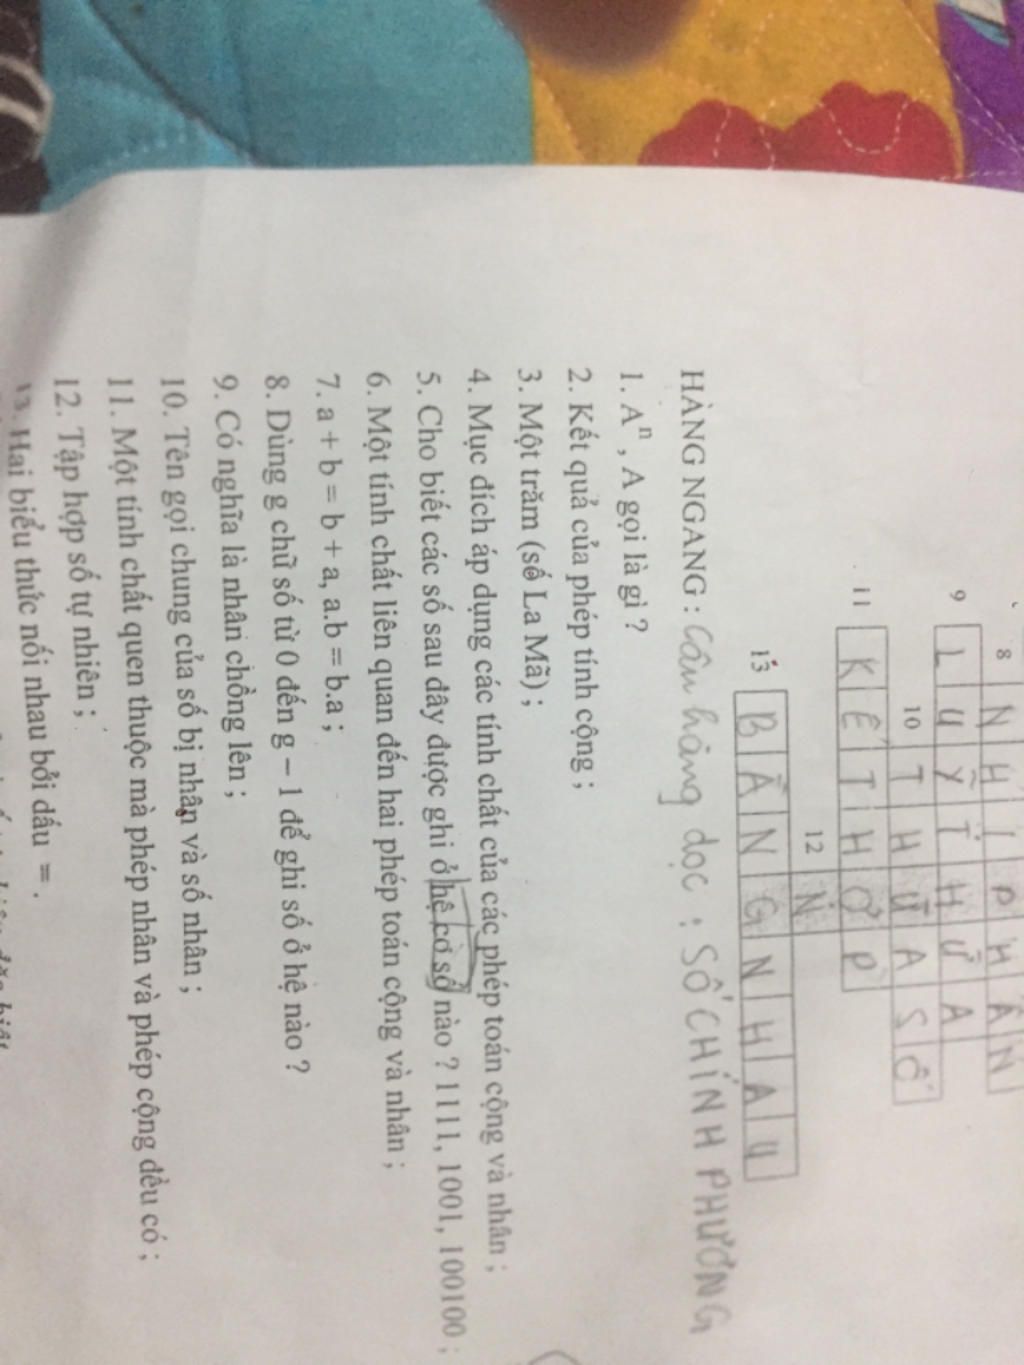 8 NHỊPHÂN
9 LUỸTHỪA
10 THỪASỐ
11 KẾTHỢP
12 N
13 BẰNGNHAU
HÀNG NGANG : Câu hàng dọc : SỐ CHÍNH PHƯƠNG
1. Aⁿ , A gọi là gì ?
2. Kết quả của phép tính cộng ;
3. Một trăm (số La Mã) ;
4. Mục đích áp dụng các tính chất của các phép toán cộng và nhân ;
5. Cho biết các số sau đây được ghi ở hệ cơ số nào ? 1111, 1001, 100100 ;
6. Một tính chất liên quan đến hai phép toán cộng và nhân ;
7. a + b = b + a, a.b = b.a ;
8. Dùng g chữ số từ 0 đến g – 1 để ghi số ở hệ nào ?
9. Có nghĩa là nhân chồng lên ;
10. Tên gọi chung của số bị nhân và số nhân ;
11. Một tính chất quen thuộc mà phép nhân và phép cộng đều có ;
12. Tập hợp số tự nhiên ;
13. Hai biểu thức nối nhau bởi dấu = .